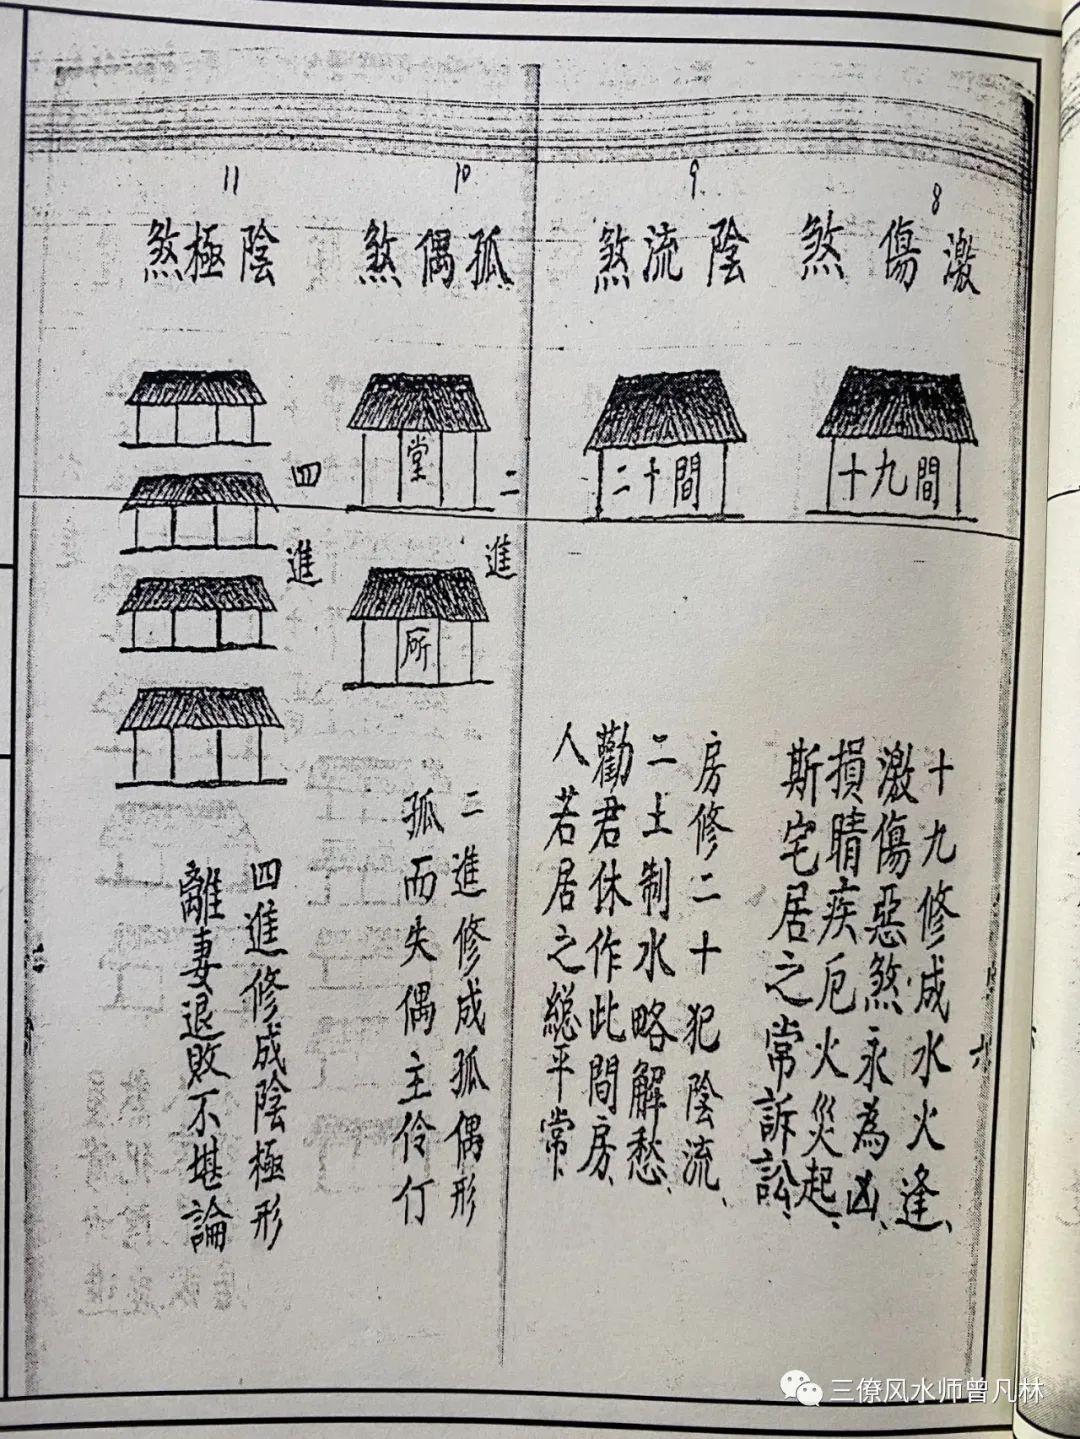 8
激傷煞
十九間
十九修成水火逢、
激傷惡煞永為凶、
損睛疾厄火災起、
斯宅居之常訴訟、
六
9
陰流煞
二十間
房修二十犯陰流、
二土制水略解愁、
勸君休作此間房、
人若居之總平常、
10
孤偶煞
二進
堂
所
二進修成孤偶形
孤而失偶主伶仃
11
陰極煞
四進
四進修成陰極形
離妻退敗不堪論
三僚风水师曾凡林